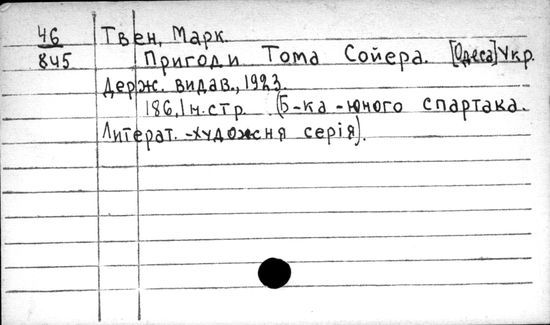 46 Твен, Марк.
845 Пригоди Тома Сойера. [Одеса] Укр.
Держ. видав., 1923.
186, 1 н. стр. (Б-ка -юного спартака.
Литерат. -художсня серія).